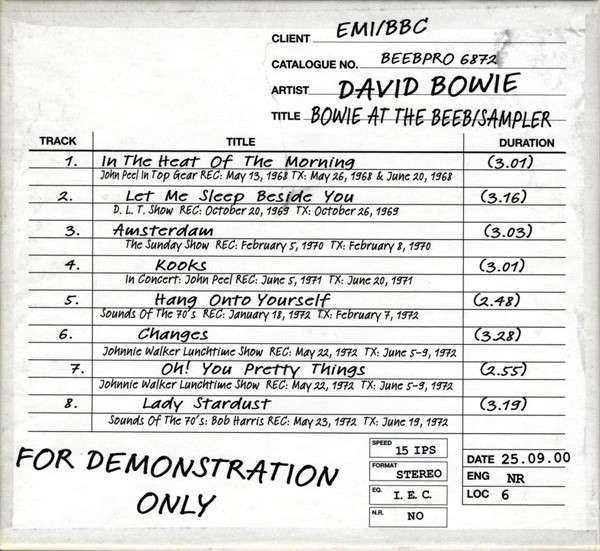 CLIENT EMI/BBC
CATALOGUE NO. BEEBPRO 6872
ARTIST DAVID BOWIE
TITLE BOWIE AT THE BEEB/SAMPLER
TRACK TITLE DURATION
1. In The Heat Of The Morning (3.01)
John Peel In Top Gear REC: May 13, 1968 TX: May 26, 1968 & June 20, 1968
2. Let Me Sleep Beside You (3.16)
D. L. T. Show REC: October 20, 1969 TX: October 26, 1969
3. Amsterdam (3.03)
The Sunday Show REC: February 5, 1970 TX: February 8, 1970
4. Kooks (3.01)
In Concert: John Peel REC: June 5, 1971 TX: June 20, 1971
5. Hang Onto Yourself (2.48)
Sounds Of The 70's REC: January 18, 1972 TX: February 7, 1972
6. Changes (3.28)
Johnnie Walker Lunchtime Show REC: May 22, 1972 TX: June 5-9, 1972
7. Oh! You Pretty Things (2.55)
Johnnie Walker Lunchtime Show REC: May 22, 1972 TX: June 5-9, 1972
8. Lady Stardust (3.19)
Sounds Of The 70's: Bob Harris REC: May 23, 1972 TX: June 19, 1972
FOR DEMONSTRATION
ONLY
SPEED 15 IPS
FORMAT STEREO
EQ. I. E. C.
N.R. NO
DATE 25.09.00
ENG NR
LOC 6